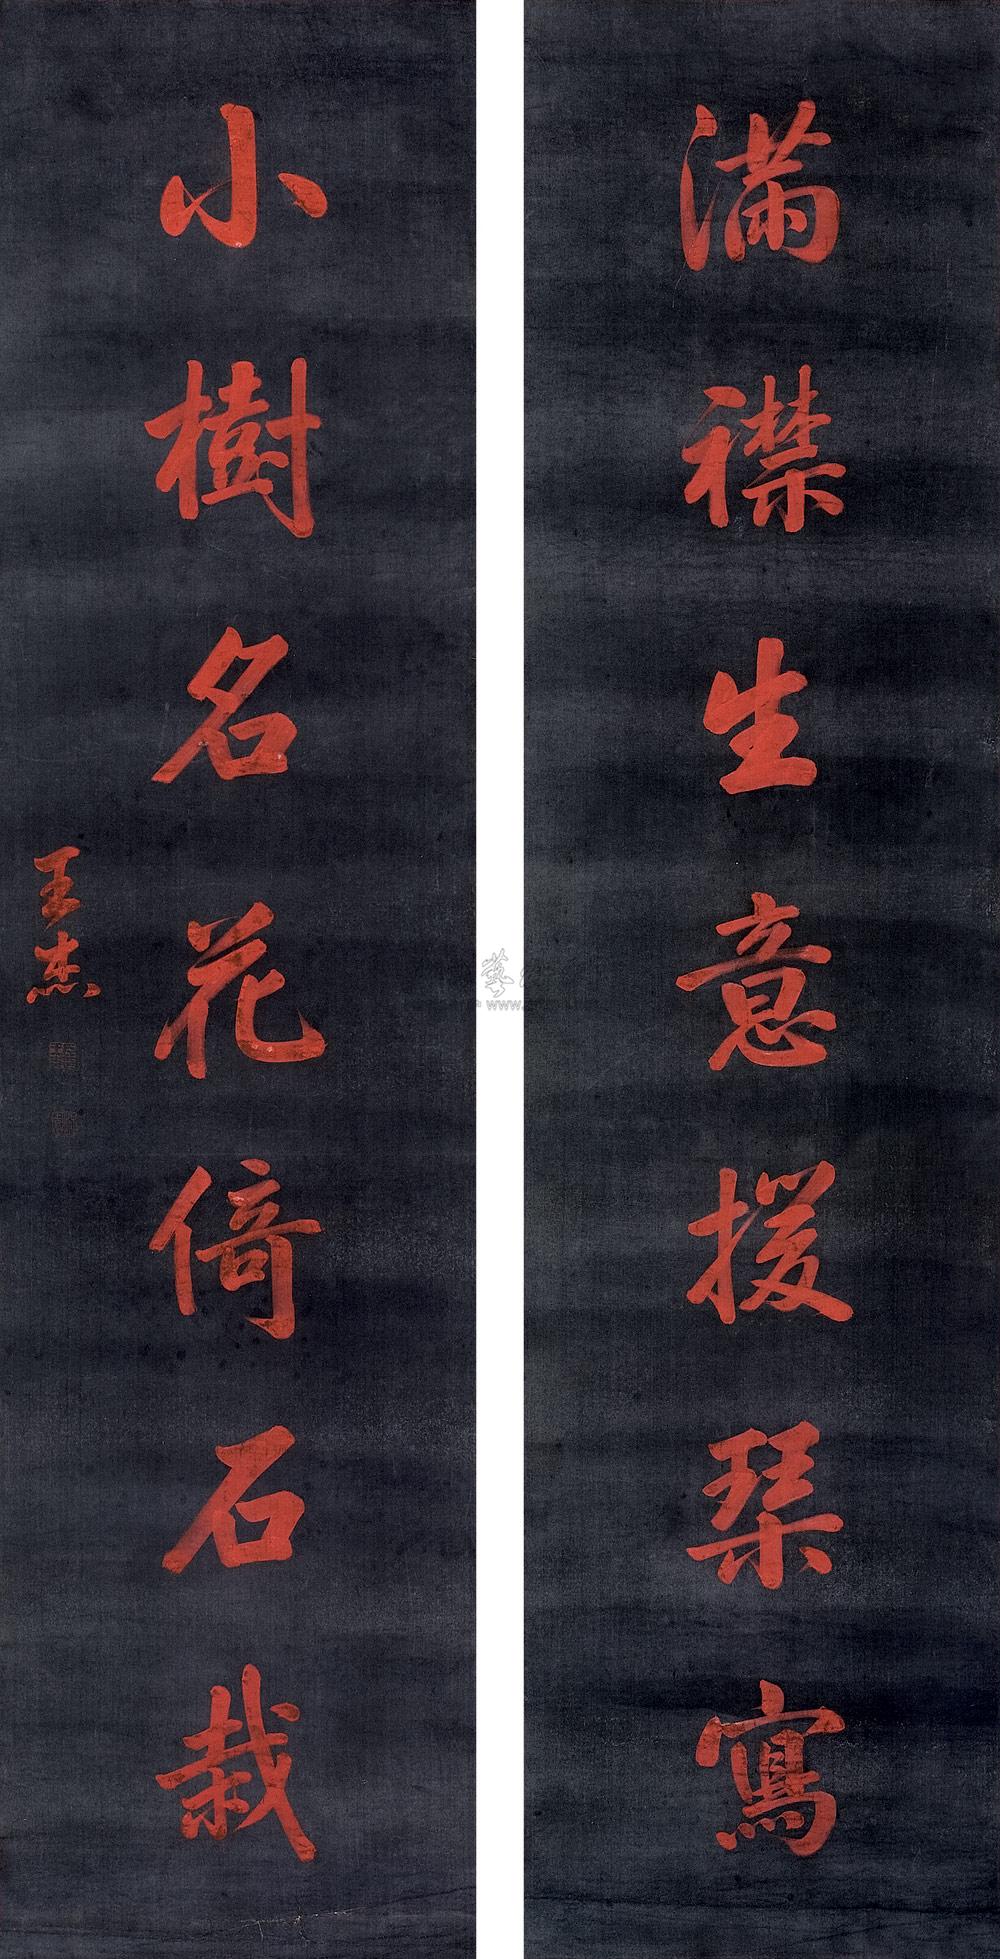 滿襟生意援琴寫
小樹名花倚石栽
王杰
藝
www.